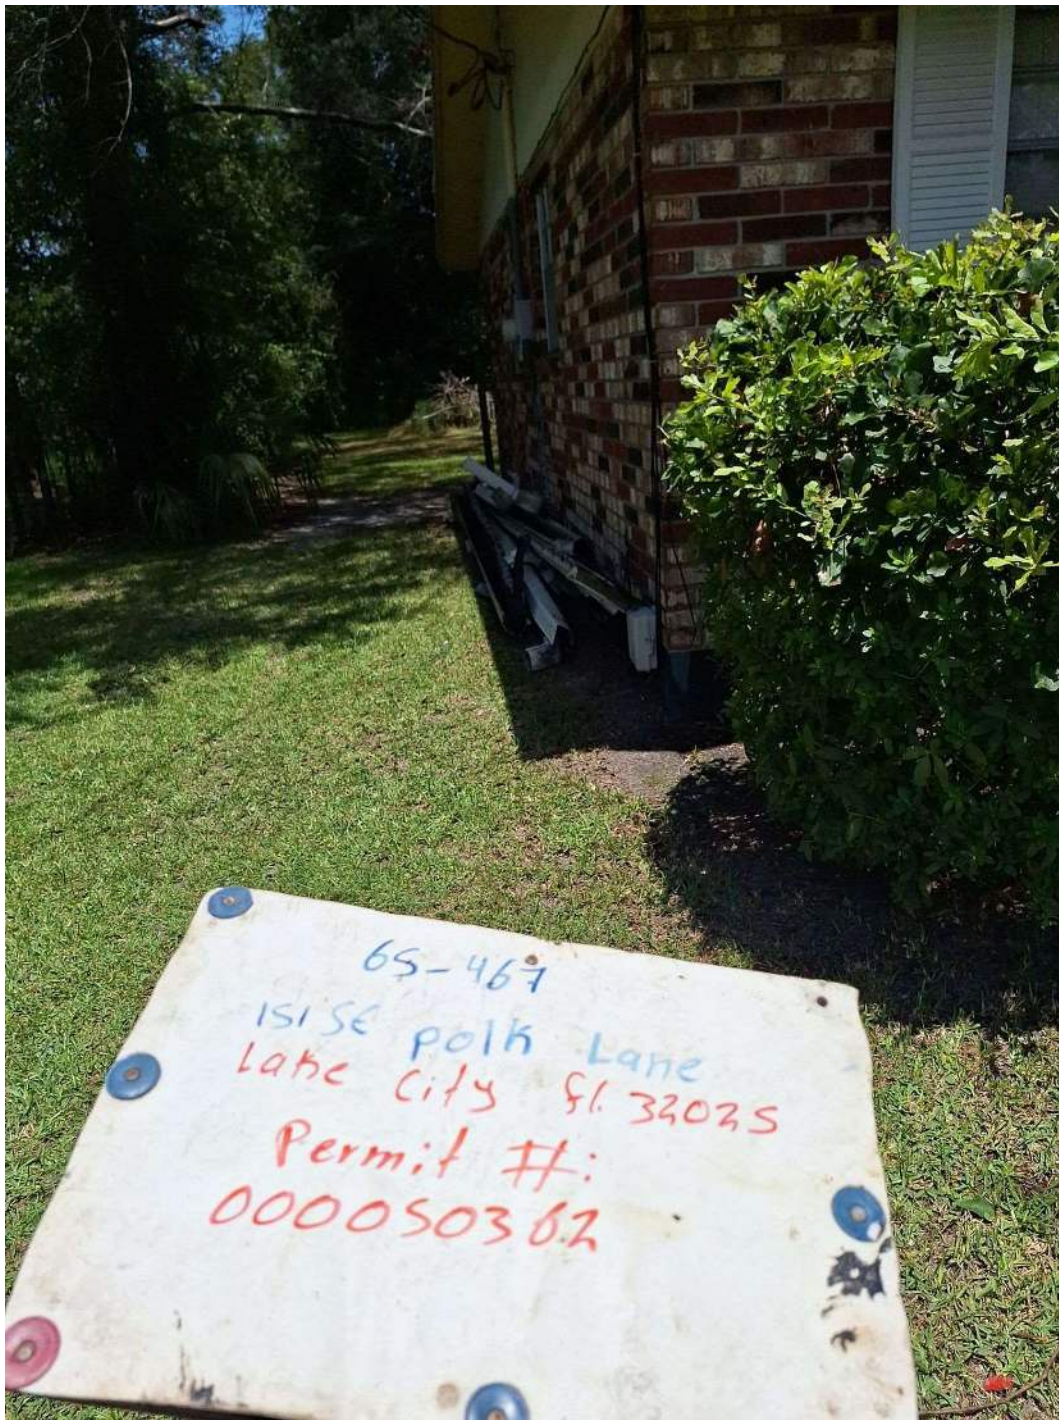 6S-467
151 SE Polk Lane
Lake City fl. 32025
Permit #:
000050362